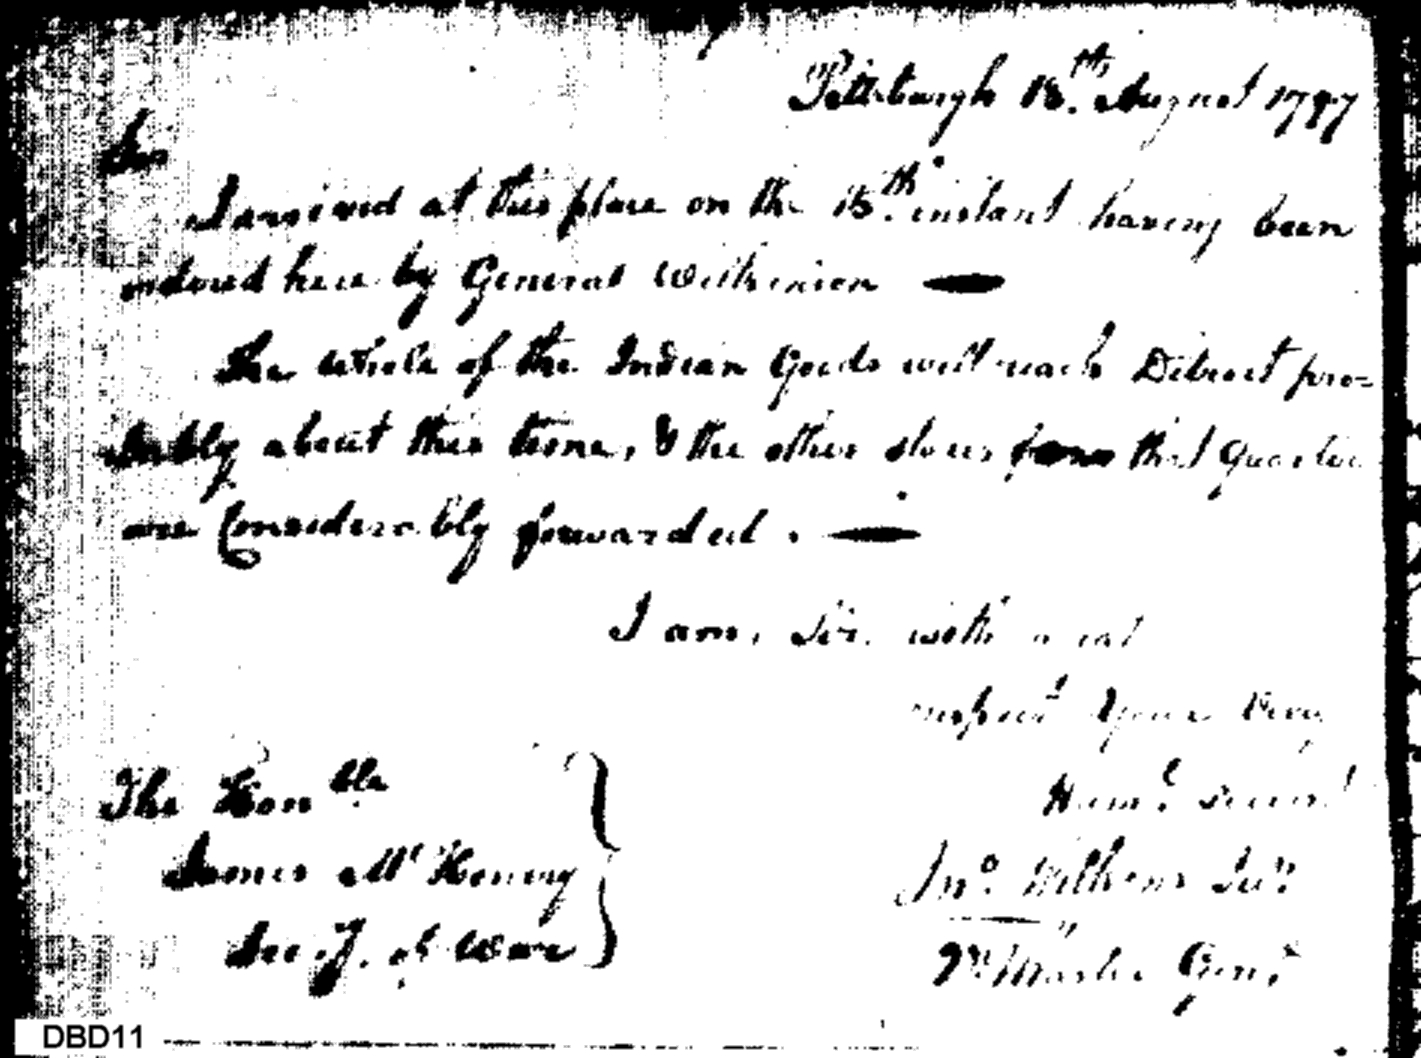 Pittsburgh 18.th August 1797
Sir
I arrived at this place on the 15.th instant having been
ordered here by General Wilkinson —
The whole of the Indian Goods will reach Detroit pro=
bably about this time, & the other stores for that Quarter
are Considerably forwarded. —
I am, Sir, with great
respect Your Very
Hum.l Servant
Jn.o Wilkins Jun.r
Qr Master Gen.l
The Hon.ble
James McHenry
Sec.y. of War
DBD11